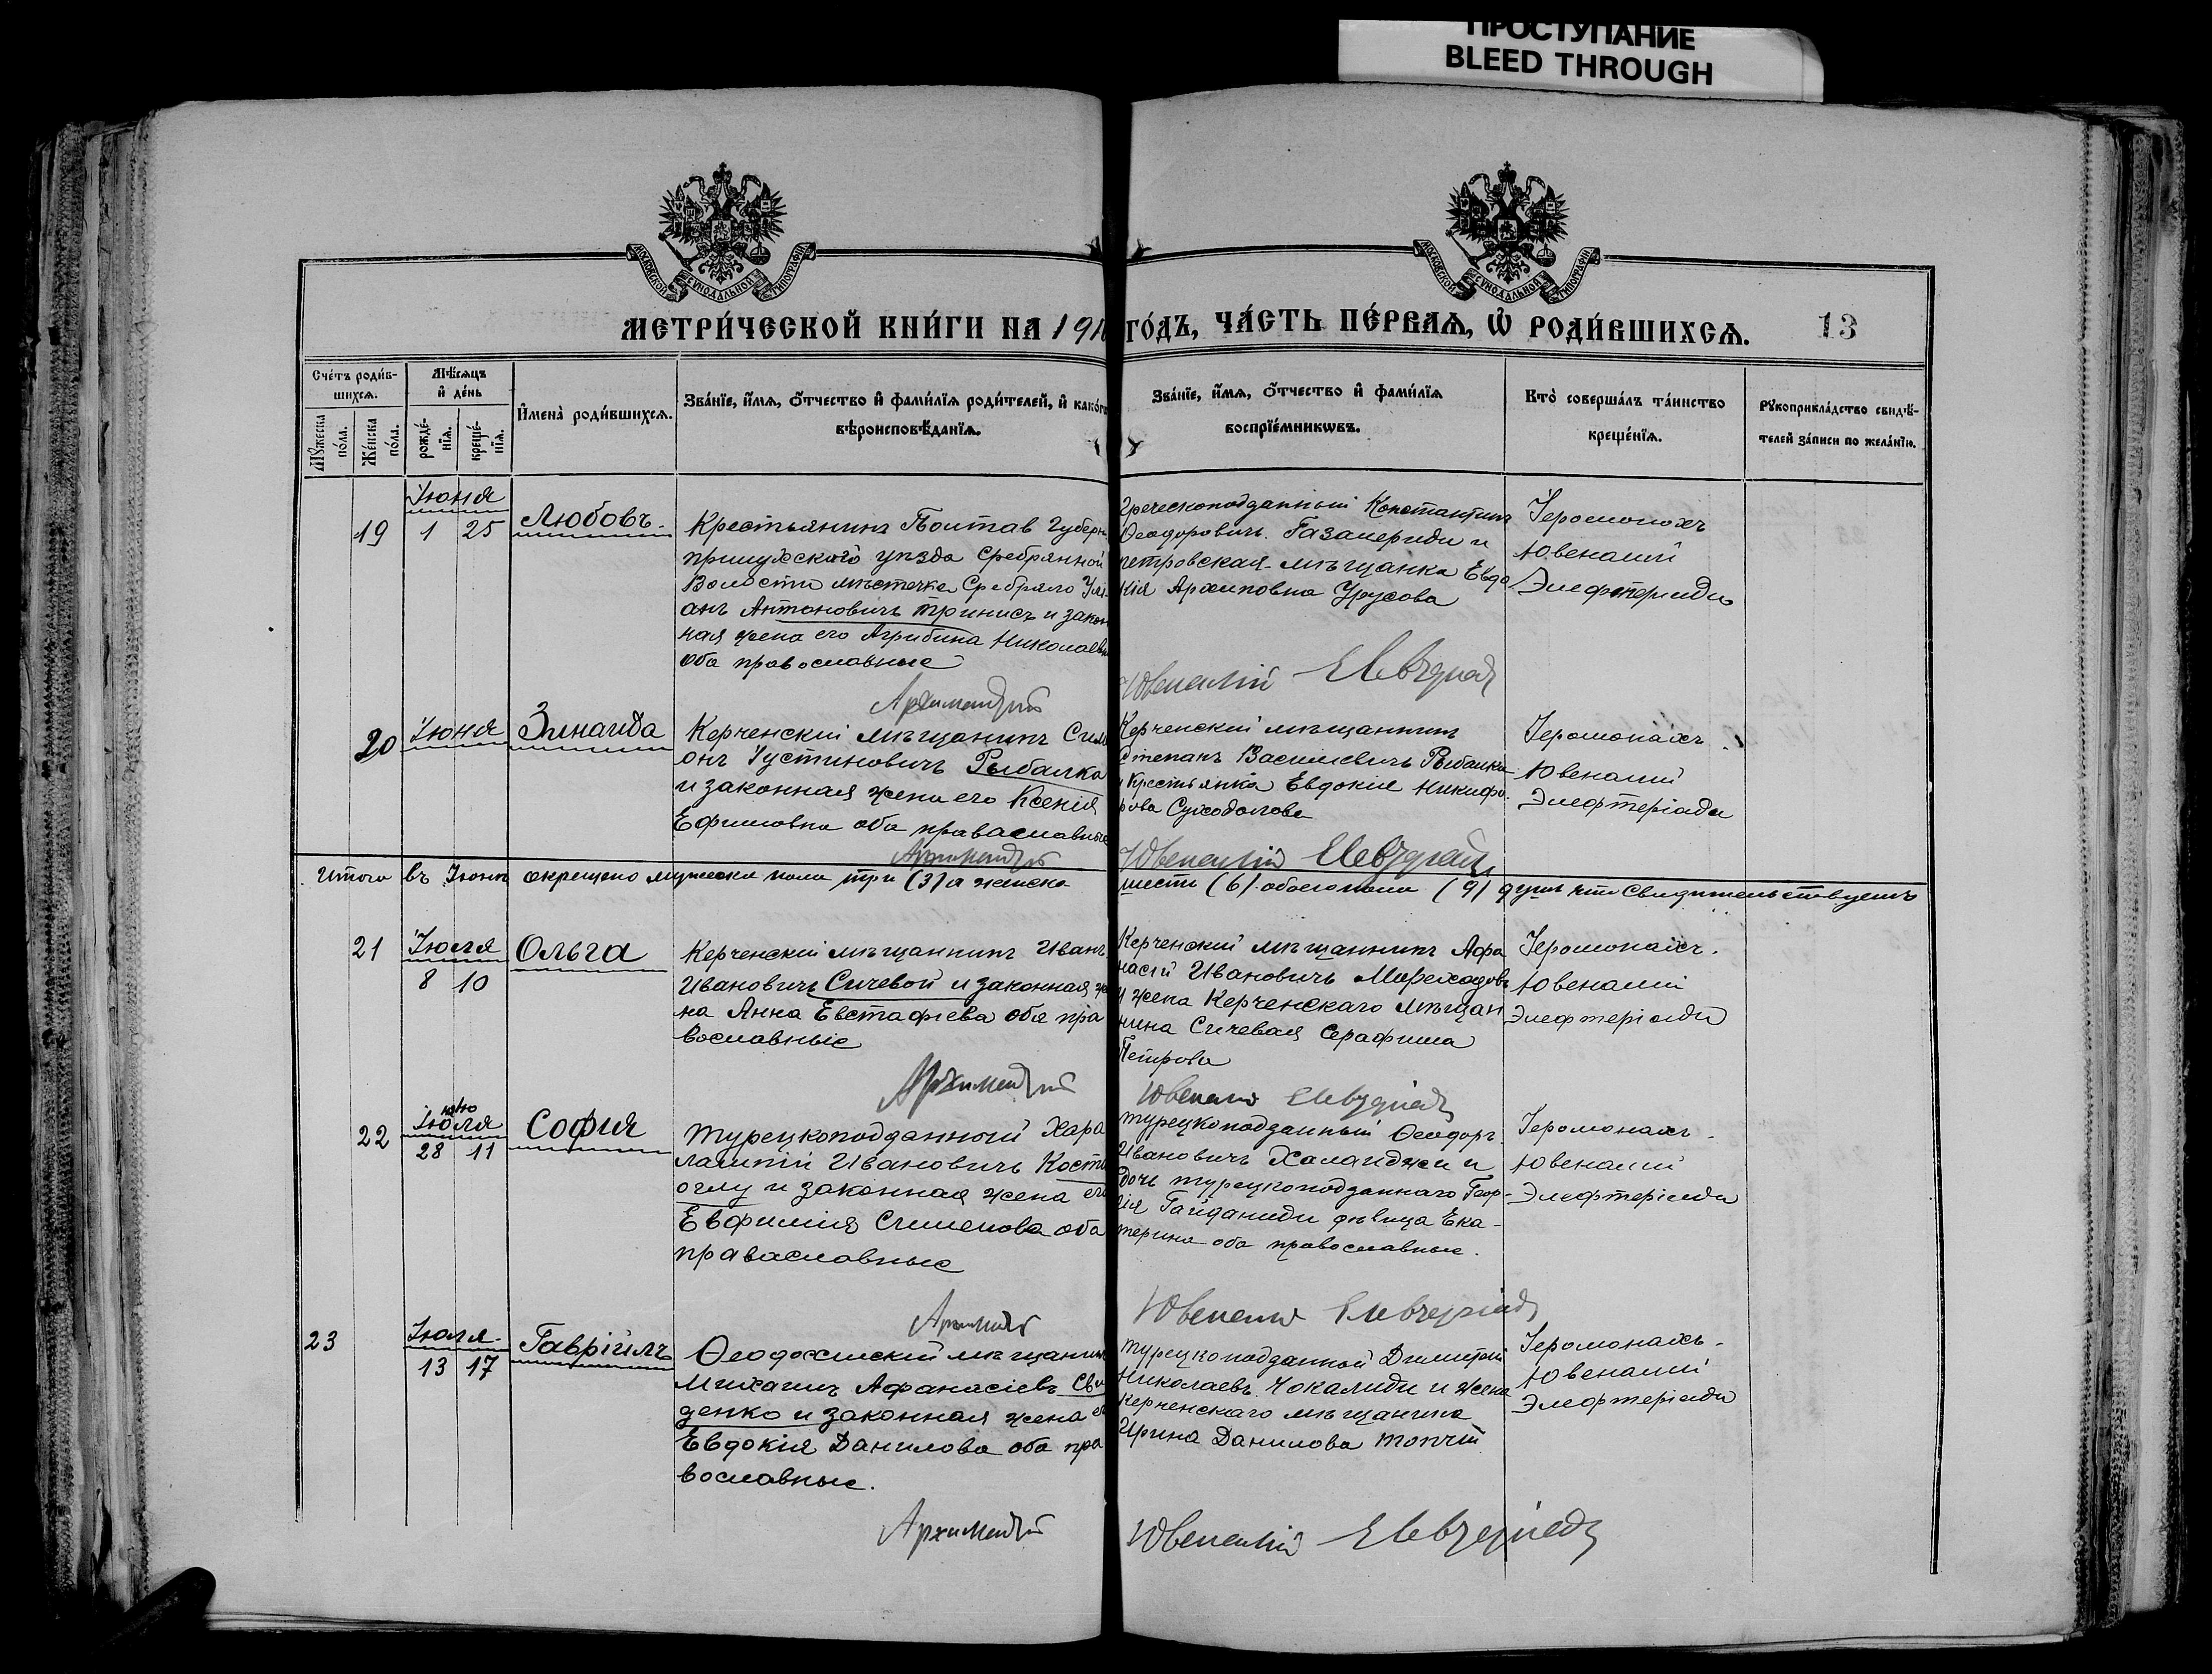 ПРОСТУПАНИЕ
BLEED THROUGH
МОСКОВСКОЙ СѴНОДАЛЬНОЙ ТИПОГРАФІИ
МОСКОВСКОЙ СѴНОДАЛЬНОЙ ТИПОГРАФІИ
МЕТРИ́ЧЕСКОЙ КНИ́ГИ НА 191
ГО́ДЪ, ЧА́СТЬ ПЕ́РВАѦ, Ѡ҆ РОДИ́ВШИХСѦ. 13
Сче́тъ роди́в-
шихсѧ.
Мѣ́сѧцъ
и҆ де́нь
Мꙋ́жеска
по́ла.
Же́нска
по́ла.
рожде́-
нїѧ.
креще́-
нїѧ.
И҆мена̀ роди́вшихсѧ.
Зва́нїе, и҆́мѧ, ѻ҆́тчество и҆ фами́лїѧ роди́телей, и҆ како́гѡ
вѣроисповѣ́данїѧ.
Зва́нїе, и҆́мѧ, ѻ҆́тчество и҆ фами́лїѧ
воспрїе́мникѡвъ.
Кто̀ соверша́лъ та́инство
креще́нїѧ.
Рꙋкоприкла́дство свидѣ́-
телей за́писи по жела́нїю.
19
Іюня
1 25
Любовь.
Крестьянинъ Полтав Губерн
прилукского уѣзда Сребрянной
Волости мѣстечка Сребряно Ули
анъ Антоновичъ Тринисъ и закон
ная жена его Агрибина Николаевн
оба православные
Архимандрит
Греческоподданный Константинъ
Ѳеодоровичъ
петровская мѣщанка Евдо
кія Архиповна Урусова
Ювеналій
Іеромонохъ
Ювеналий
Элефтериади
20
Іюня
Зинаида
Керченскій мѣщанинъ Сим
онъ Іустиновичъ Рыбалка
и законная жена его Ксенія
Ефимовна оба праваславные
Архимандрит
Керченский мѣщанинъ
Степанъ Василиевичъ Рыбалка
и Крестьянка Евдокія Никифо
рова Суходолова
Ювеналій
Іеромонахъ.
Ювеналий
Элефтеріади
Итого въ Іюнѣ окрещено мужеска пола три (3) а женска
шести (6) обоего пола (9) душъ что Свидительствуетъ
21
Іюля
8 10
Ольга
Керченскій мѣщанинъ Иванъ
Ивановичъ Сичевой и законная же
на Анна Евстафіева оба пра
вославные
Архимандрит
Керченский мѣщанинъ Афа
насій Ивановичъ
и жена Керченскаго мѣщан
нина Сичевая Серафима
Петрова
Ювеналий
Іеромонахъ.
Ювеналий
Элефтеріади
22
Іюля
28 11
София
Турецкоподданной Хара
лампій Ивановичъ Кости
оглу и законная жена его
Евфимия Симеонова оба
праваславные
Турецкоподданный Ѳеодоръ
Ивановичъ Халанджи и
дочь турецкоподданнаго Геор-
гія Гайданиди дѣвица Ека-
терина оба православные.
Ювеналий
Іеромонахъ.
Ювеналий
Элефтеріади
23
Іюля.
13 17
Гавріилъ
Ѳеодосискій мѣщанинъ
Михаилъ Афанасіевъ Сви
денко и законная жена ег
Евдокія Данилова оба пра
вославные.
Архимандрит
Турецкоподданной Димитрій
Николаевъ Чокалиди и жена
Керченскаго мѣщанина
Ирина Данилова Топчій
Ювеналій
Іеромонахъ.
Ювеналий
Элефтеріади